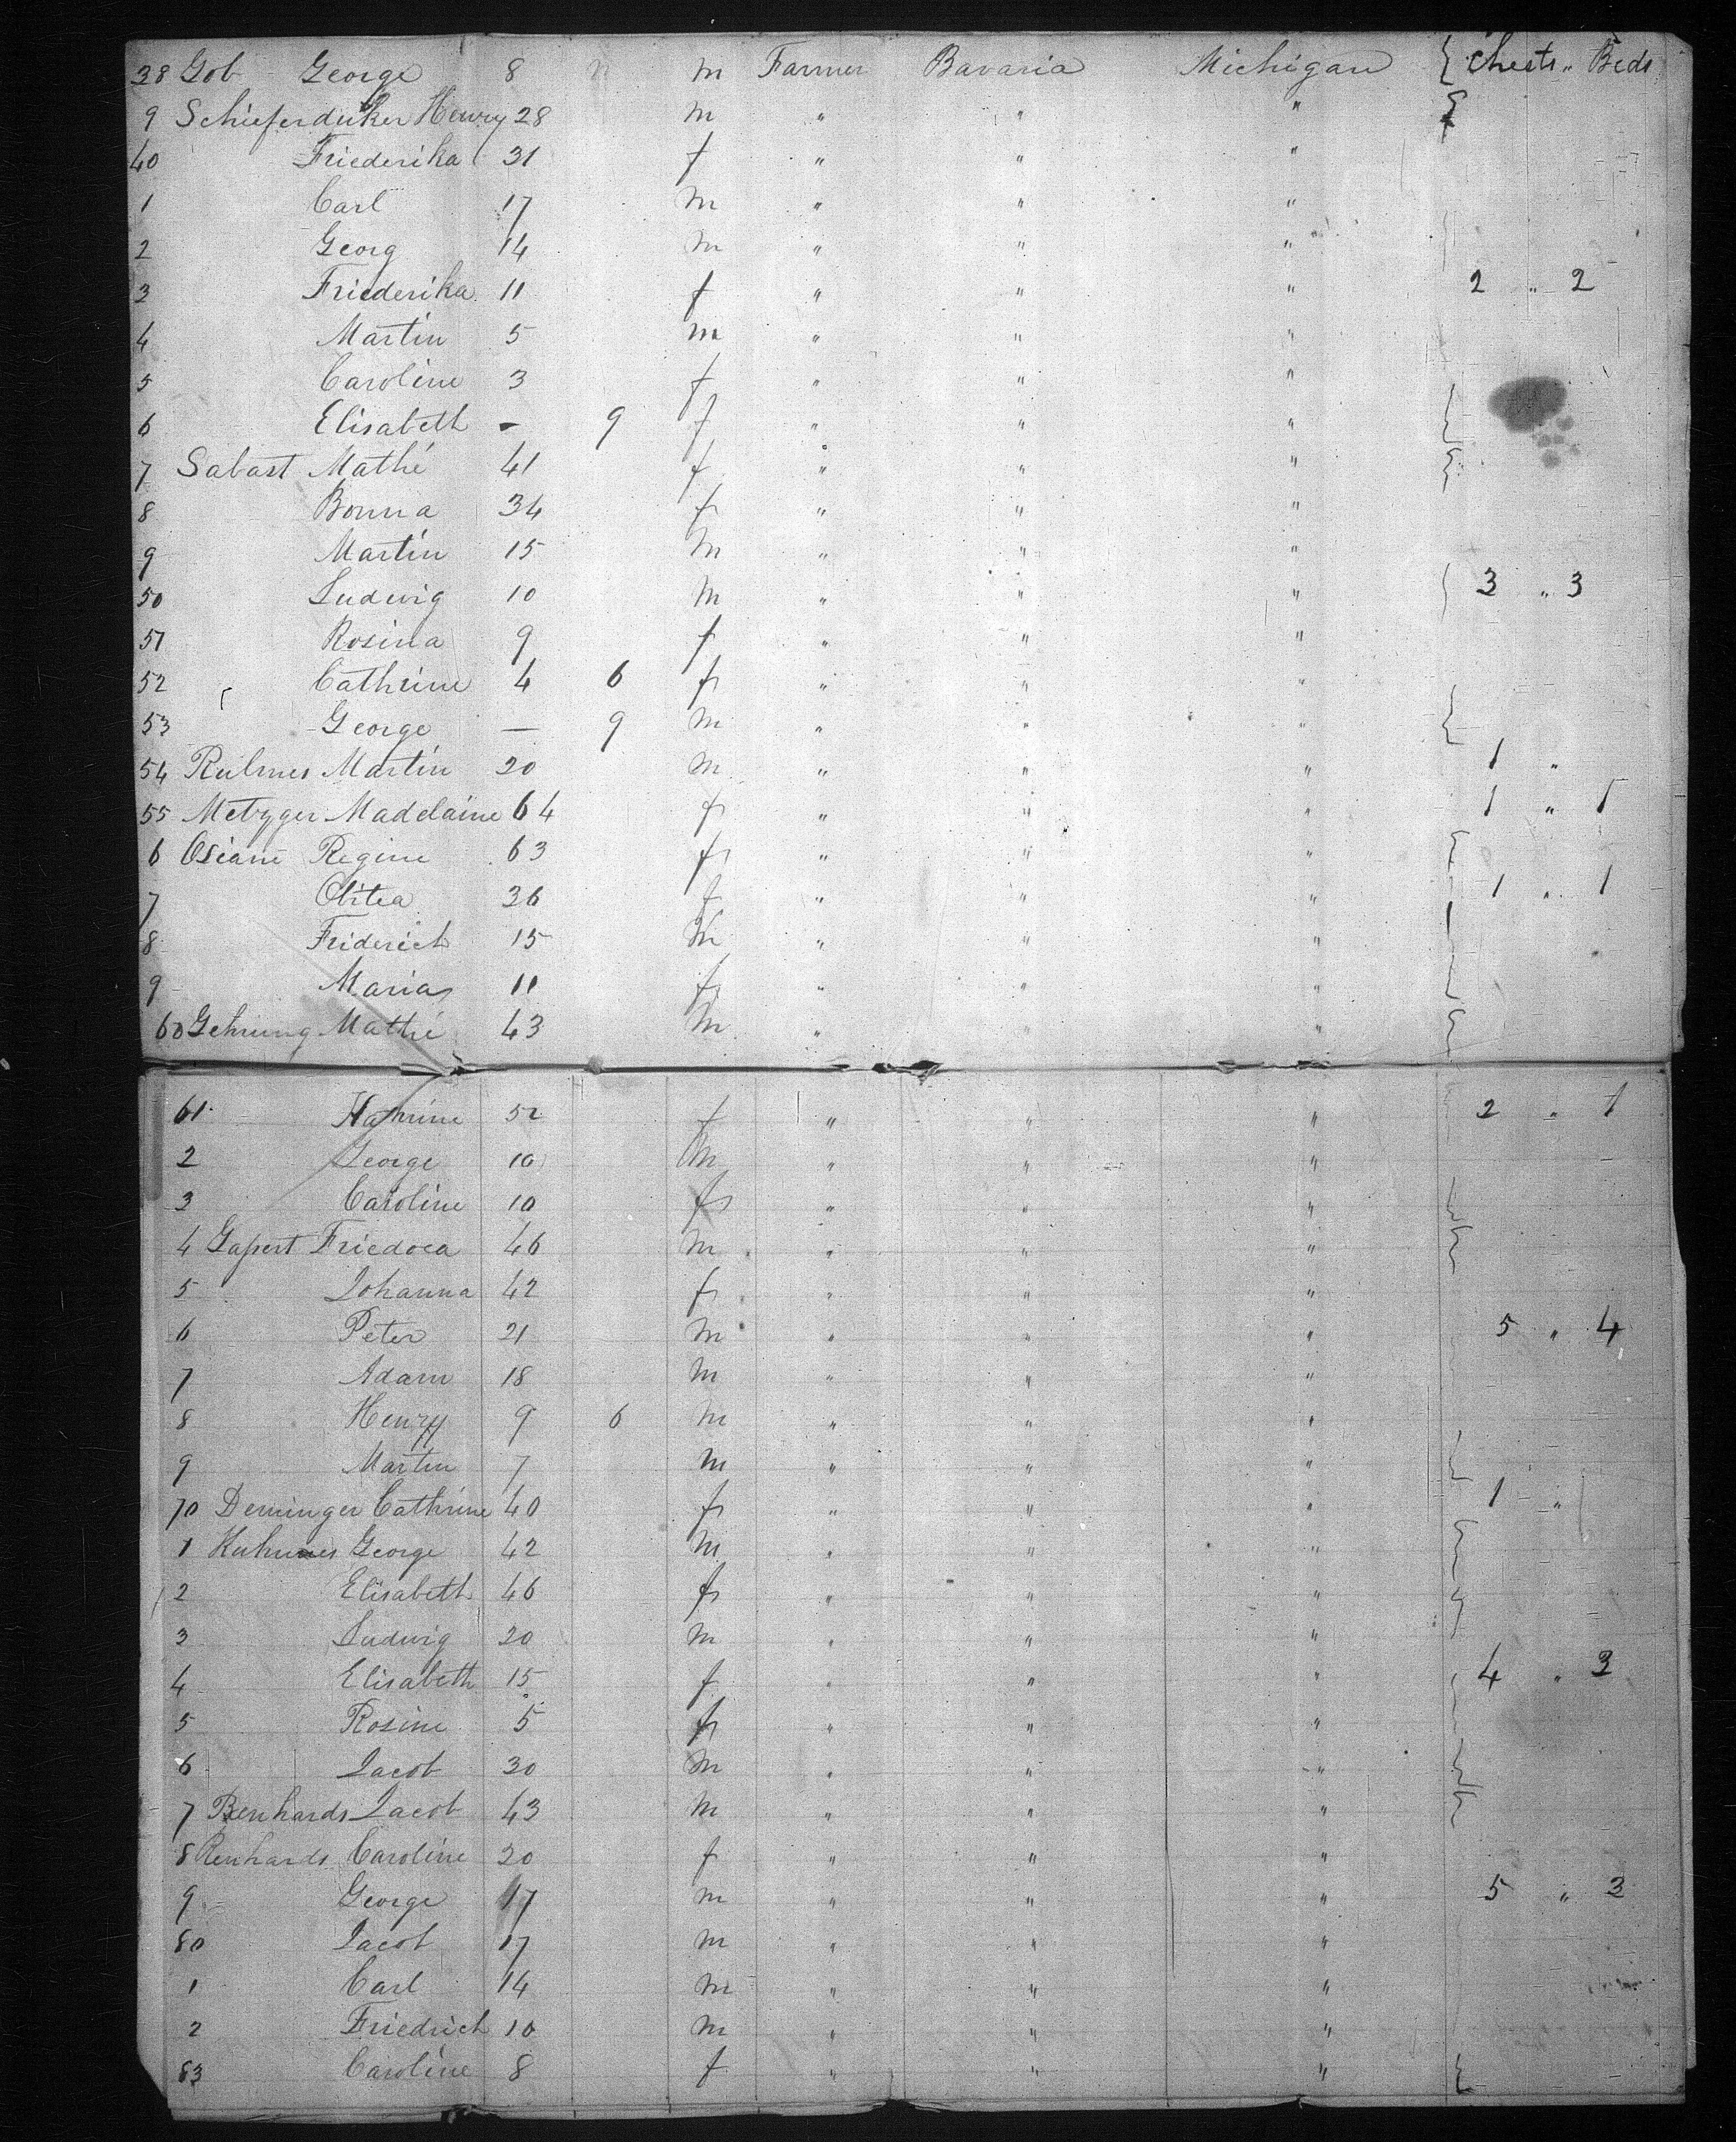 38 Gob George 8 m Farmer Bavaria Michigan { Chests „ Beds
9 Schieferduker Henry 28 m " " "
40 Friederika 31 f " " "
1 Carl 17 m " " "
2 Georg 14 m " " "
3 Friederika 11 f " " " 2 „ 2
4 Martin 5 m " " "
5 Caroline 3 f " " "
6 Elisabeth - 9 f " " "
7 Sabast Mathé 41 f " " "
8 Bonna 34 f " " "
9 Martin 15 m " " "
50 Ludwig 10 m " " " 3 „ 3
51 Rosina 9 f " " "
52 Cathrine 4 6 f " " "
53 George — 9 m " " "
54 Rulmes Martin 20 m " " " 1 „
55 Metzger Madelaine 64 f " " " 1 „ 1
6 Osiane Regine 63 f " " "
7 Olitea 36 f " " " 1 „ 1
8 Friderich 15 m " " "
9 Maria 11 f " " "
60 Gehrung Mathé 43 m " "
61 52 f " " " 2 „ 1
2 George 10 m " " "
3 Caroline 10 f " " "
4 Gapert Friedoca 46 m " " "
5 Johanna 42 f " " "
6 Peter 21 m " " " 5 „ 4
7 Adam 18 m " " "
8 Henry 9 6 m " " "
9 Martin 7 m " " "
70 Deminger Cathrine 40 f " " " 1 „
1 Kuhnes George 42 m " " "
2 Elisabeth 46 f " " "
3 Ludwig 20 m " " "
4 Elisabeth 15 f " " " 4 „ 3
5 Rosine 5 f " " "
6 Jacob 30 m " " "
7 Renhards Jacob 43 m " " "
8 Renhards Caroline 20 f " " "
9 George 17 m " " " 5 „ 3
80 Jacob 17 m " " "
1 Carl 14 m " " "
2 Friedrich 10 m " " "
83 Caroline 8 f " " "